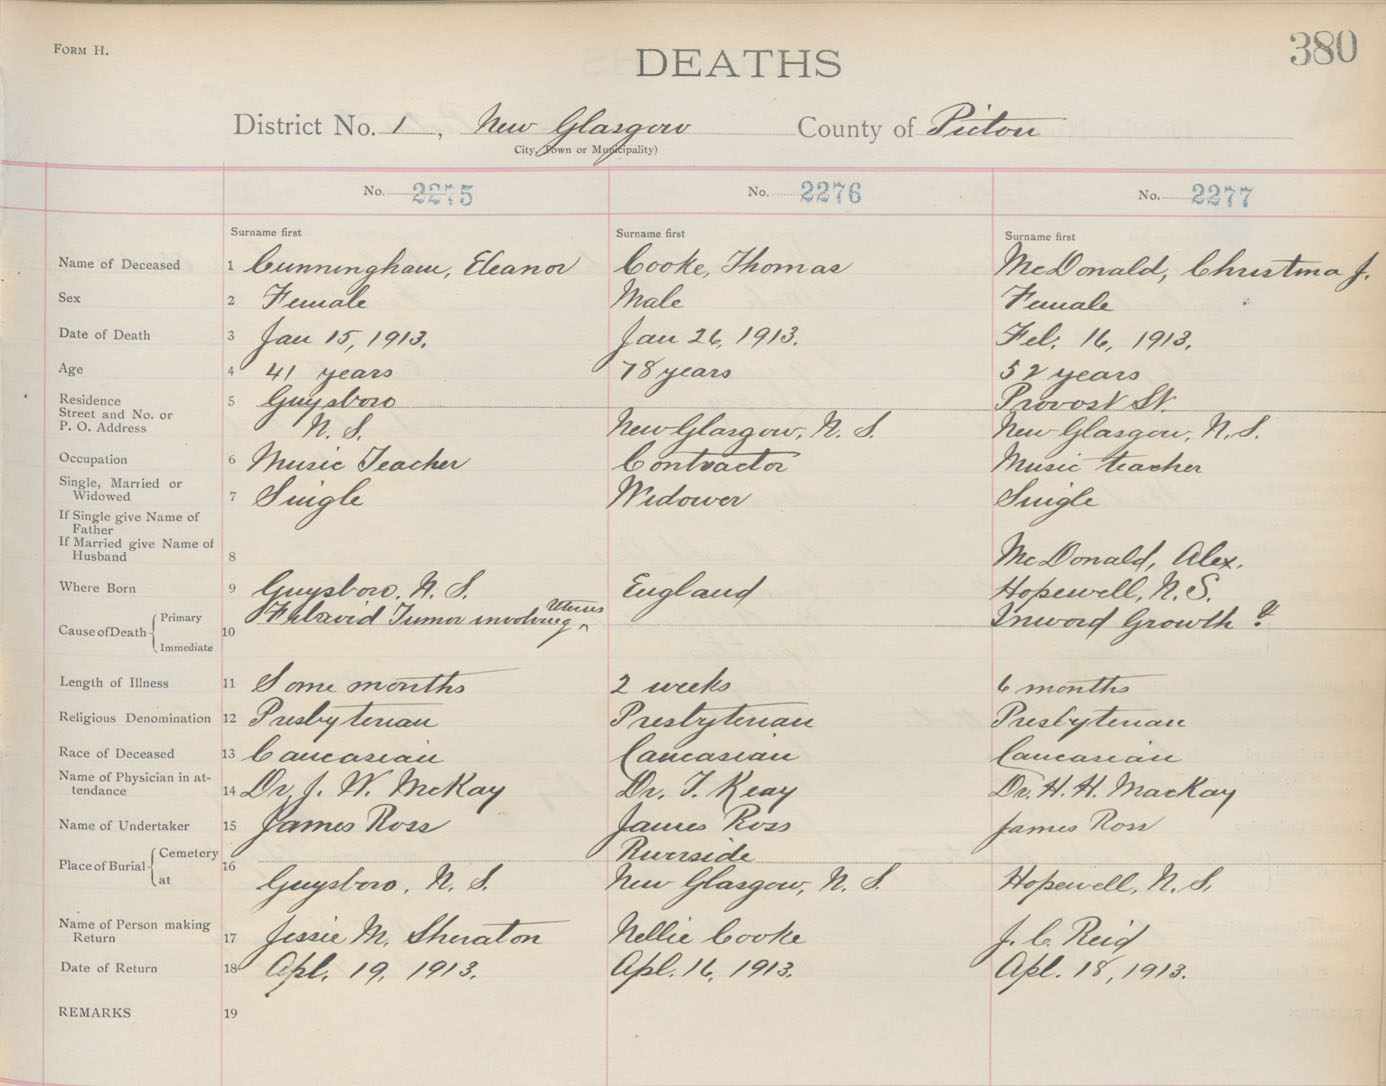 FORM H.
380
DEATHS
District No. 1, New Glasgow County of Pictou
City, Town or Municipality)
No. 2275 No. 2276 No. 2277
Surname first Surname first Surname first
Name of Deceased 1 Cunningham, Eleanor Cooke, Thomas McDonald, Christina J.
Sex 2 Female Male Female
Date of Death 3 Jan 15, 1913. Jan 26, 1913. Feb. 16, 1913.
Age 4 41 years 78 years 52 years
Residence 5 Guysboro Provost St.
Street and No. or
P. O. Address N. S. New Glasgow, N. S. New Glasgow, N. S.
Occupation 6 Music Teacher Contractor Music teacher
Single, Married or
Widowed 7 Single Widower Single
If Single give Name of
Father
If Married give Name of
Husband 8 McDonald, Alex.
Where Born 9 Guysboro, N. S. England Hopewell, N. S.
Cause of Death Primary 10 Tumor involving Uterus Inword Growth ?
Immediate
Length of Illness 11 Some months 2 weeks 6 months
Religious Denomination 12 Presbyterian Presbyterian Presbyterian
Race of Deceased 13 Caucasian Caucasian Caucasian
Name of Physician in at-
tendance 14 Dr. J. W. McKay Dr. T. Keay Dr. H. H. MacKay
Name of Undertaker 15 James Ross James Ross James Ross
Place of Burial Cemetery 16 Riverside
at Guysboro, N. S. New Glasgow, N. S. Hopewell, N. S.
Name of Person making
Return 17 Jessie M. Sheraton Nellie Cooke J. C. Reid
Date of Return 18 Apl. 19, 1913. Apl. 16, 1913. Apl. 18, 1913.
REMARKS 19